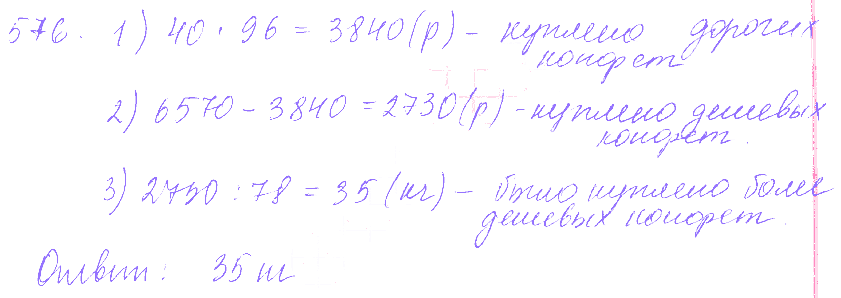 576. 1) 40 · 96 = 3840 (р) – куплено дорогих
конфет
2) 6570 – 3840 = 2730 (р) – куплено дешевых
конфет.
3) 2730 : 78 = 35 (кг) – было куплено более
дешевых конфет.
Ответ: 35 кг